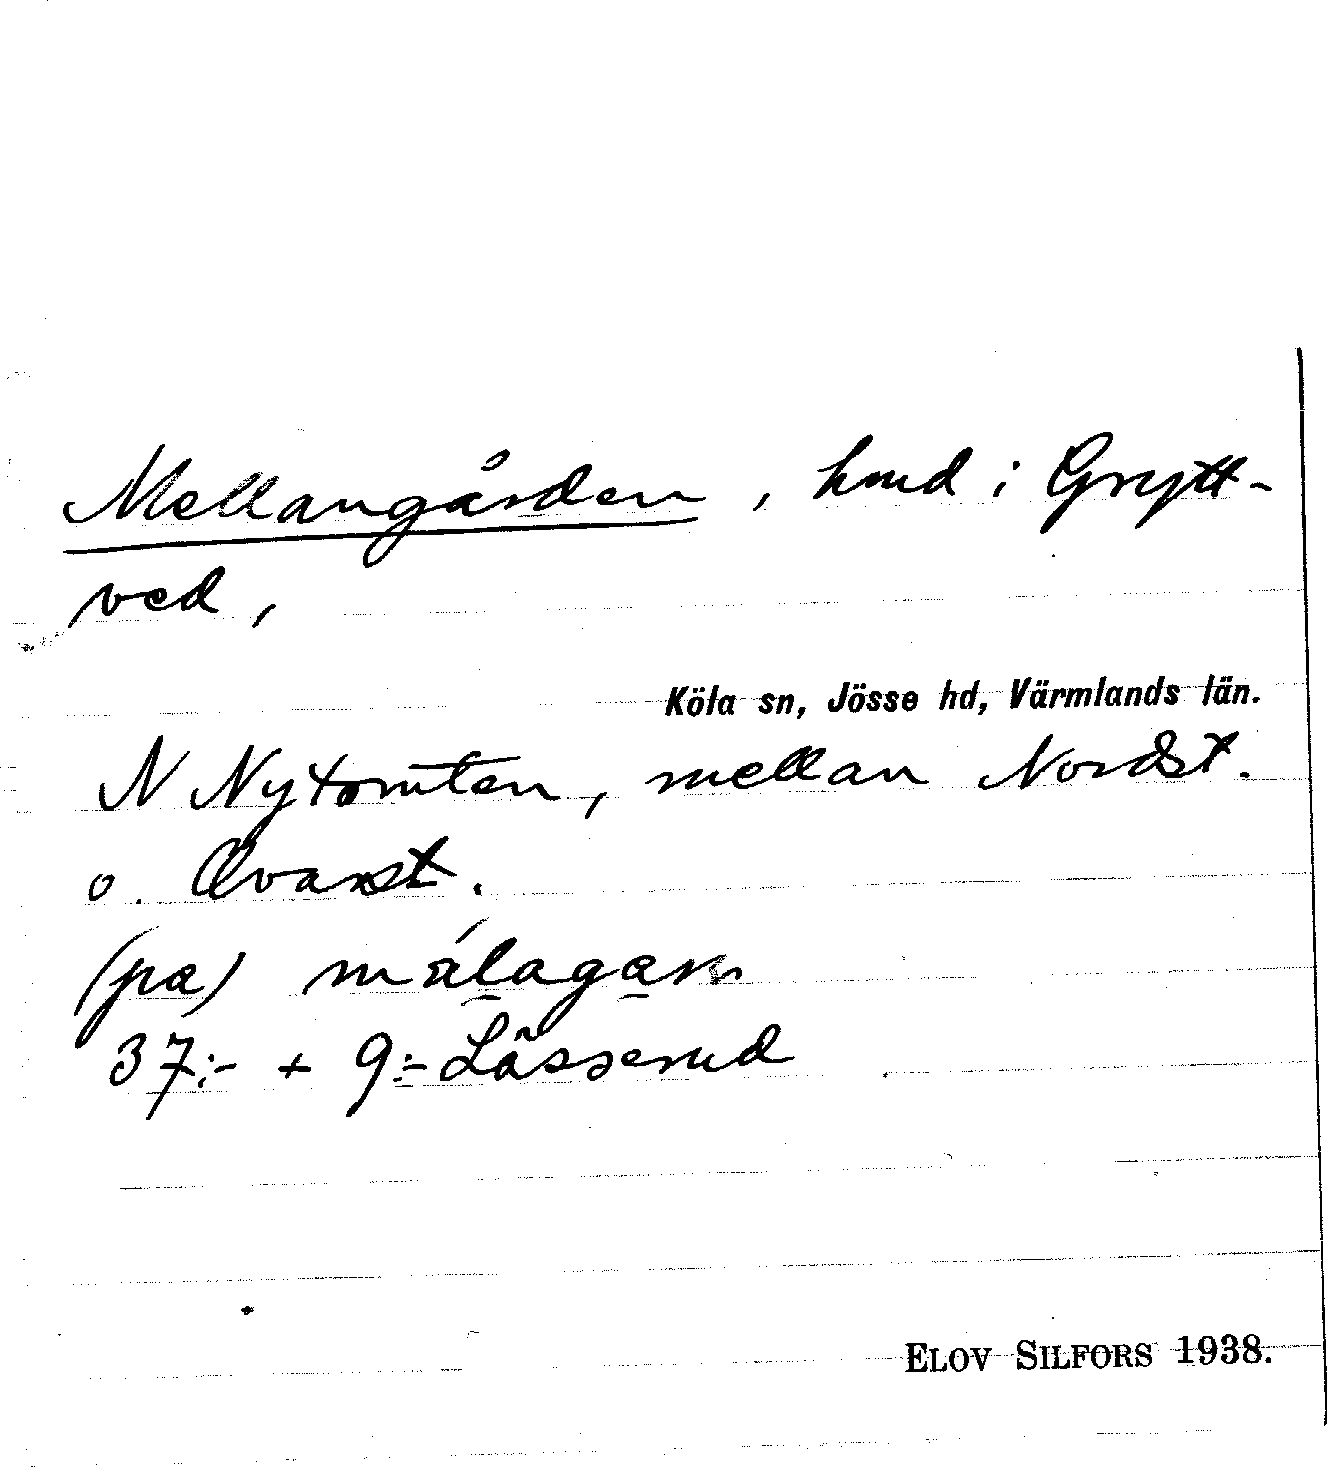 Mellangården, hmd i Grytt-
ved,
Köla sn, Jösse hd, Värmlands län.
N Nytomten, mellan Nordst.
o. Ovanst.
(pa)
37:- + 9:- Lässerud
ELOV SILFORS 1938.